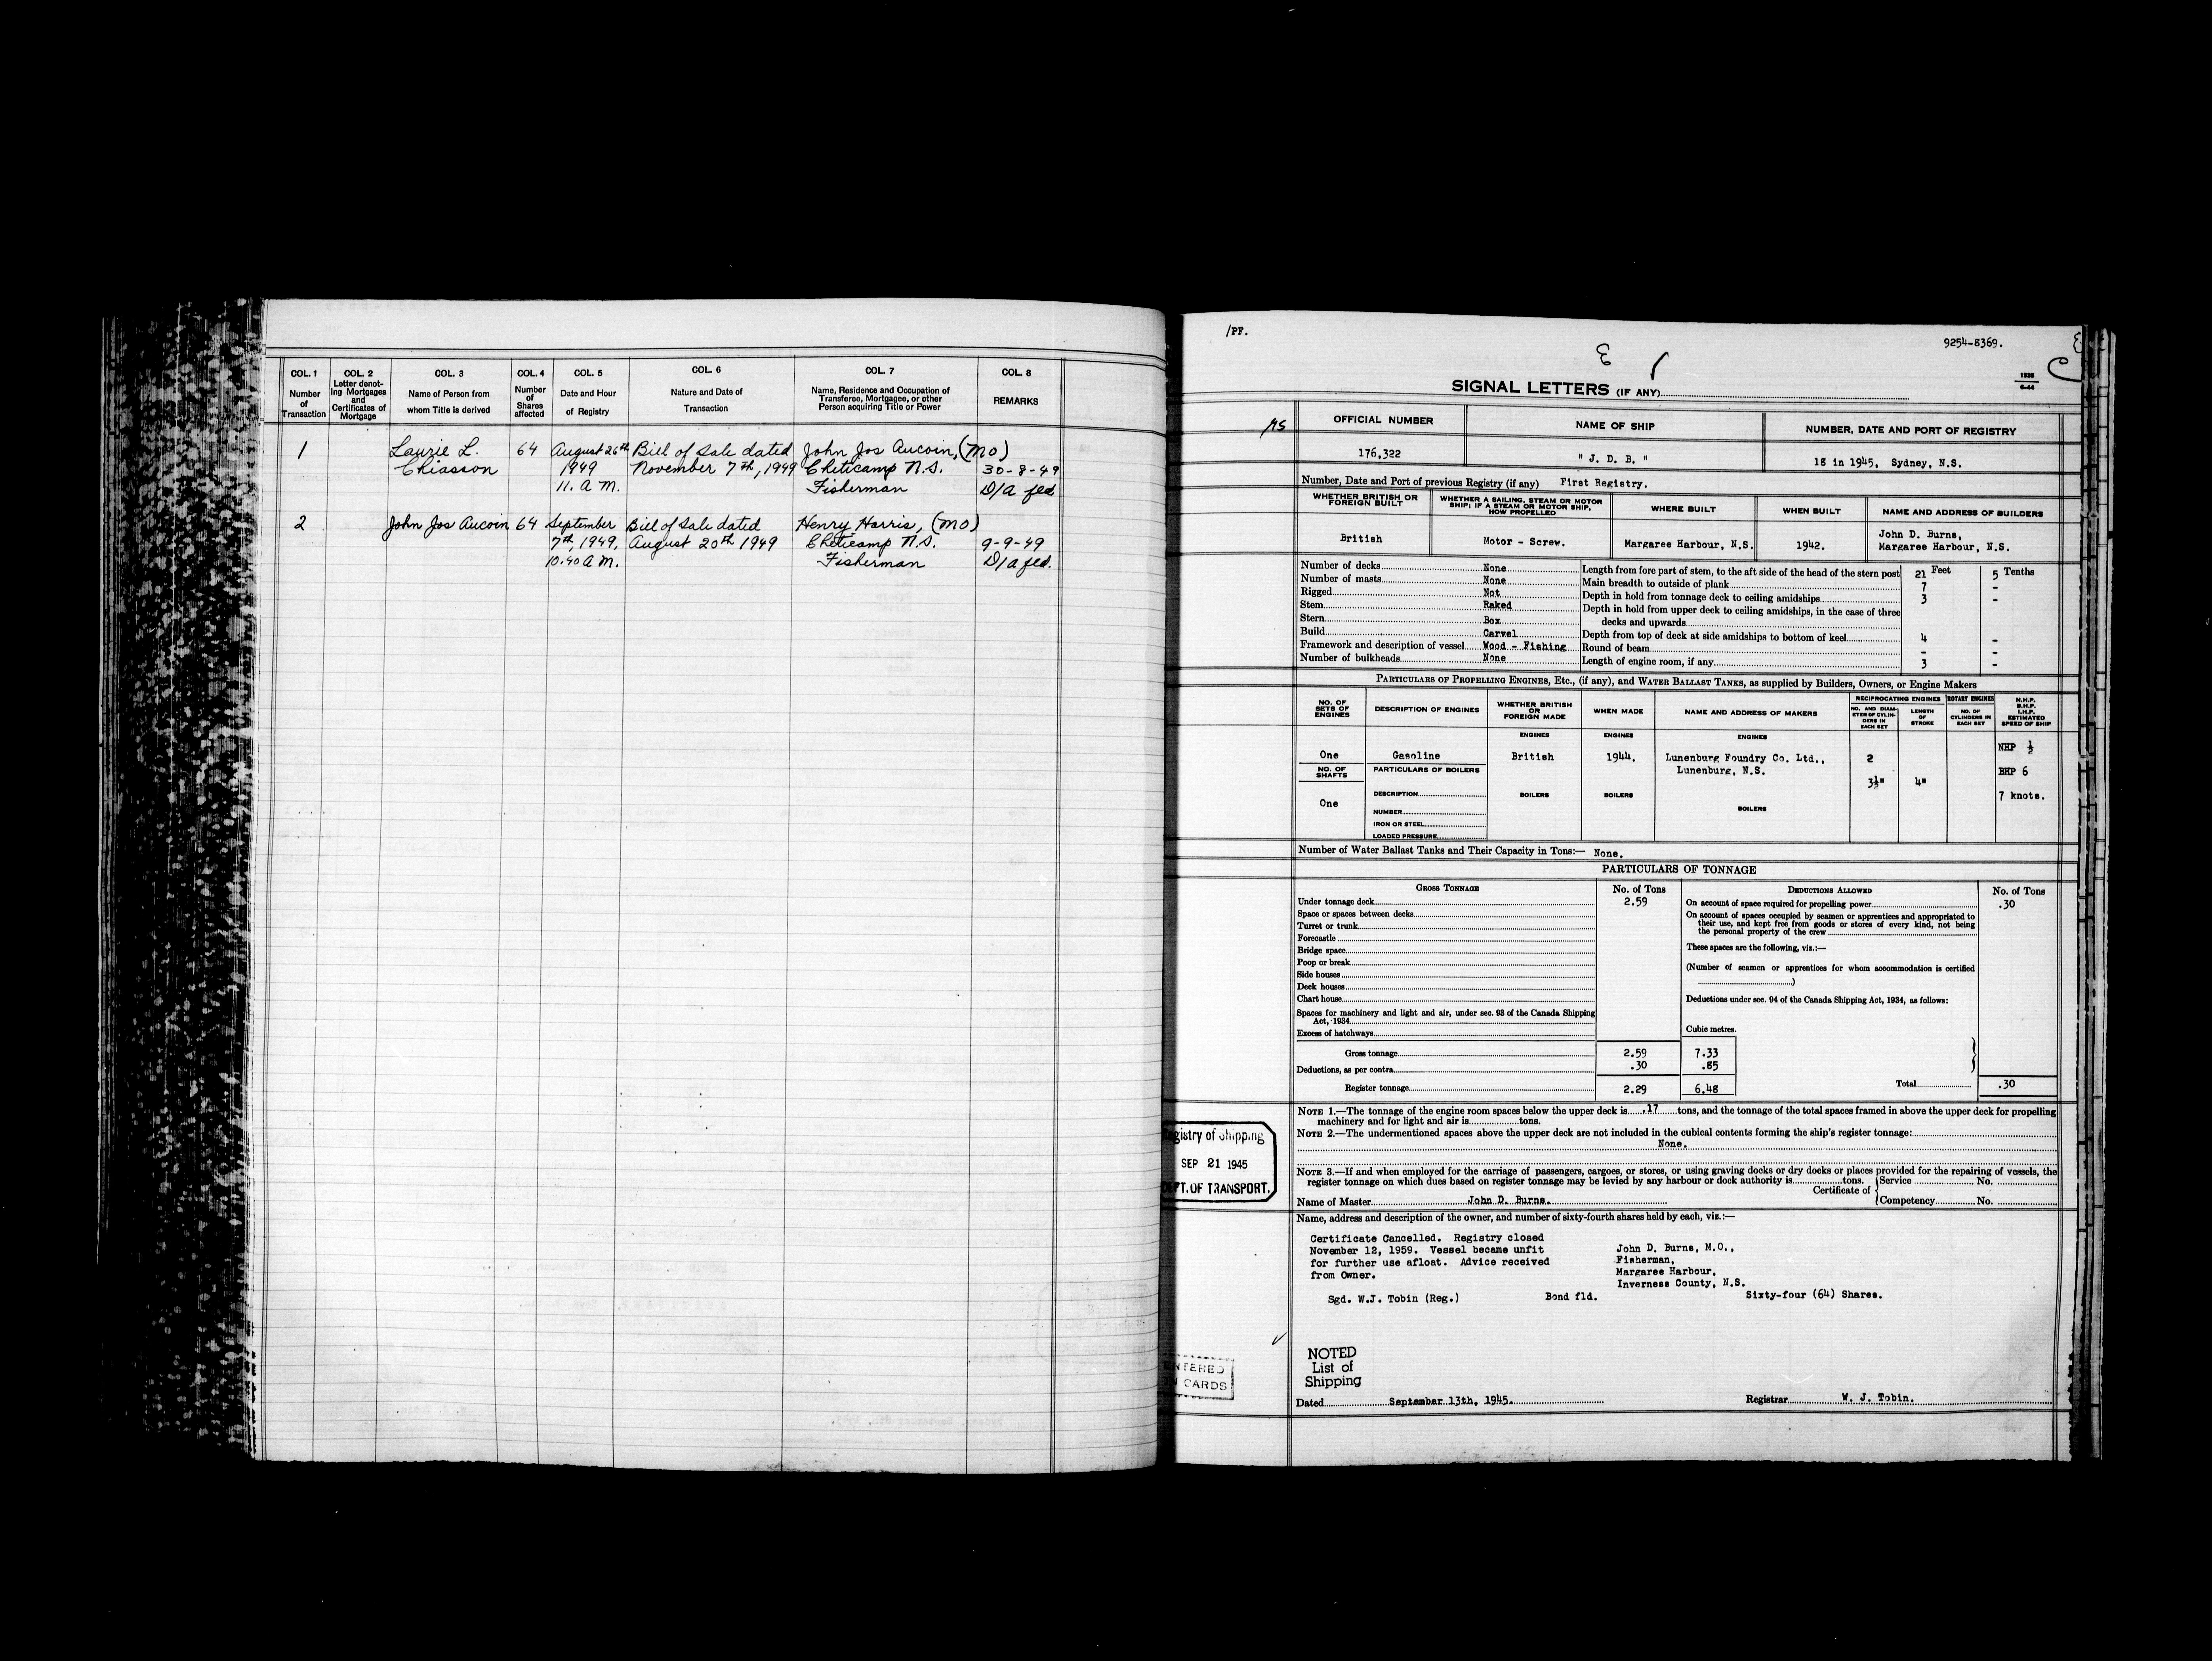 COL. 1 COL. 2 COL. 3 COL. 4 COL. 5 COL. 6 COL. 7 COL. 8
Number of Transaction
Letter denoting Mortgages and Certificates of Mortgage
Name of Person from whom Title is derived
Number of Shares affected
Date and Hour of Registry
Nature and Date of Transaction
Name, Residence and Occupation of Transferee, Mortgagee, or other Person acquiring Title or Power
REMARKS
1 Laurie L. 64 August 26th Bill of Sale dated John Jos Aucoin, (MO)
Chiasson 1949 November 7th, 1949 Cheticamp N.S. 30-8-49
11. A M. Fisherman D/a fed
2 John Jos Aucoin 64 September Bill of Sale dated Henry Harris, (MO)
7th, 1949, August 20th 1949 Cheticamp N.S. 9-9-49
10.40 A M. Fisherman D/a fed.
/PF.
9254-8369.
SIGNAL LETTERS (IF ANY)
OFFICIAL NUMBER NAME OF SHIP NUMBER, DATE AND PORT OF REGISTRY
176,322 " J. D. B. " 18 in 1945, Sydney, N.S.
Number, Date and Port of previous Registry (if any) First Registry.
WHETHER BRITISH OR FOREIGN BUILT
WHETHER A SAILING, STEAM OR MOTOR SHIP; IF A STEAM OR MOTOR SHIP, HOW PROPELLED
WHERE BUILT WHEN BUILT NAME AND ADDRESS OF BUILDERS
British Motor - Screw. Margaree Harbour, N.S. 1942. John D. Burns,
Margaree Harbour, N.S.
Number of decks None
Number of masts None
Rigged Not
Stem Raked
Stern Box
Build Carvel
Framework and description of vessel Wood - Fishing
Number of bulkheads None
Feet Tenths
Length from fore part of stem, to the aft side of the head of the stern post 21 5
Main breadth to outside of plank 7 -
Depth in hold from tonnage deck to ceiling amidships 3 -
Depth in hold from upper deck to ceiling amidships, in the case of three
decks and upwards
Depth from top of deck at side amidships to bottom of keel 4 -
Round of beam - -
Length of engine room, if any 3 -
PARTICULARS OF PROPELLING ENGINES, ETC., (if any), and WATER BALLAST TANKS, as supplied by Builders, Owners, or Engine Makers
NO. OF SETS OF ENGINES
DESCRIPTION OF ENGINES
WHETHER BRITISH OR FOREIGN MADE
WHEN MADE
NAME AND ADDRESS OF MAKERS
RECIPROCATING ENGINES ROTARY ENGINES
NO. AND DIAMETER OF CYLINDERS IN EACH SET
LENGTH OF STROKE
NO. OF CYLINDERS IN EACH SET
N.H.P. B.H.P. I.H.P. ESTIMATED SPEED OF SHIP
ENGINES ENGINES ENGINES
One Gasoline British 1944. Lunenburg Foundry Co. Ltd., 2 NHP ½
Lunenburg, N.S. 3½" 4" BHP 6
7 knots.
NO. OF SHAFTS
One
PARTICULARS OF BOILERS
DESCRIPTION
BOILERS BOILERS BOILERS
NUMBER
IRON OR STEEL
LOADED PRESSURE
Number of Water Ballast Tanks and Their Capacity in Tons:— None.
PARTICULARS OF TONNAGE
GROSS TONNAGE No. of Tons DEDUCTIONS ALLOWED No. of Tons
Under tonnage deck 2.59
Space or spaces between decks
Turret or trunk
Forecastle
Bridge space
Poop or break
Side houses
Deck houses
Chart house
Spaces for machinery and light and air, under sec. 93 of the Canada Shipping
Act, 1934
Excess of hatchways
Gross tonnage 2.59 7.33
Deductions, as per contra .30 .85
Register tonnage 2.29 6.48
On account of space required for propelling power .30
On account of spaces occupied by seamen or apprentices and appropriated to
their use, and kept free from goods or stores of every kind, not being
the personal property of the crew
These spaces are the following, viz.:—
(Number of seamen or apprentices for whom accommodation is certified
)
Deductions under sec. 94 of the Canada Shipping Act, 1934, as follows:
Cubic metres.
Total .30
NOTE 1.—The tonnage of the engine room spaces below the upper deck is .17 tons, and the tonnage of the total spaces framed in above the upper deck for propelling
machinery and for light and air is tons.
NOTE 2.—The undermentioned spaces above the upper deck are not included in the cubical contents forming the ship's register tonnage:
None.
NOTE 3.—If and when employed for the carriage of passengers, cargoes, or stores, or using graving docks or dry docks or places provided for the repairing of vessels, the
register tonnage on which dues based on register tonnage may be levied by any harbour or dock authority is tons.
Certificate of Service No.
Competency No.
Name of Master John D. Burns.
Registry of Shipping
SEP 21 1945
DEPT. OF TRANSPORT.
Name, address and description of the owner, and number of sixty-fourth shares held by each, viz.:—
Certificate Cancelled. Registry closed
November 12, 1959. Vessel became unfit
for further use afloat. Advice received
from Owner.
Sgd. W.J. Tobin (Reg.) Bond fld.
John D. Burns, M.O.,
Fisherman,
Margaree Harbour,
Inverness County, N.S.
Sixty-four (64) Shares.
NOTED
List of
Shipping
ENTERED
ON CARDS
Dated September 13th, 1945. Registrar W. J. Tobin.